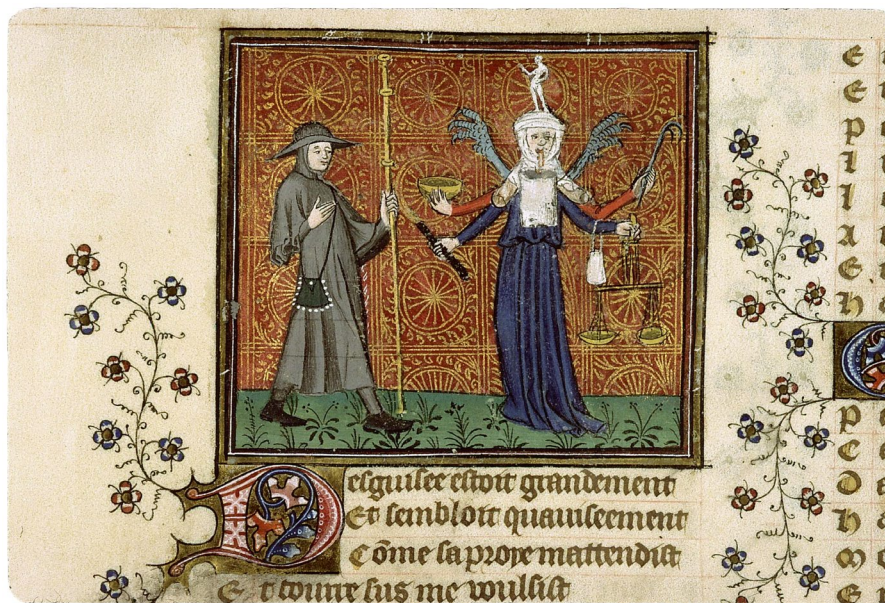 Desguisee estoit grandement
Et sembloit quauiseement
Cōme sa proye mattendist
Et courre sus me voulsist
E
E
P
I
L
A
E
h
P
C
O
h
M
E